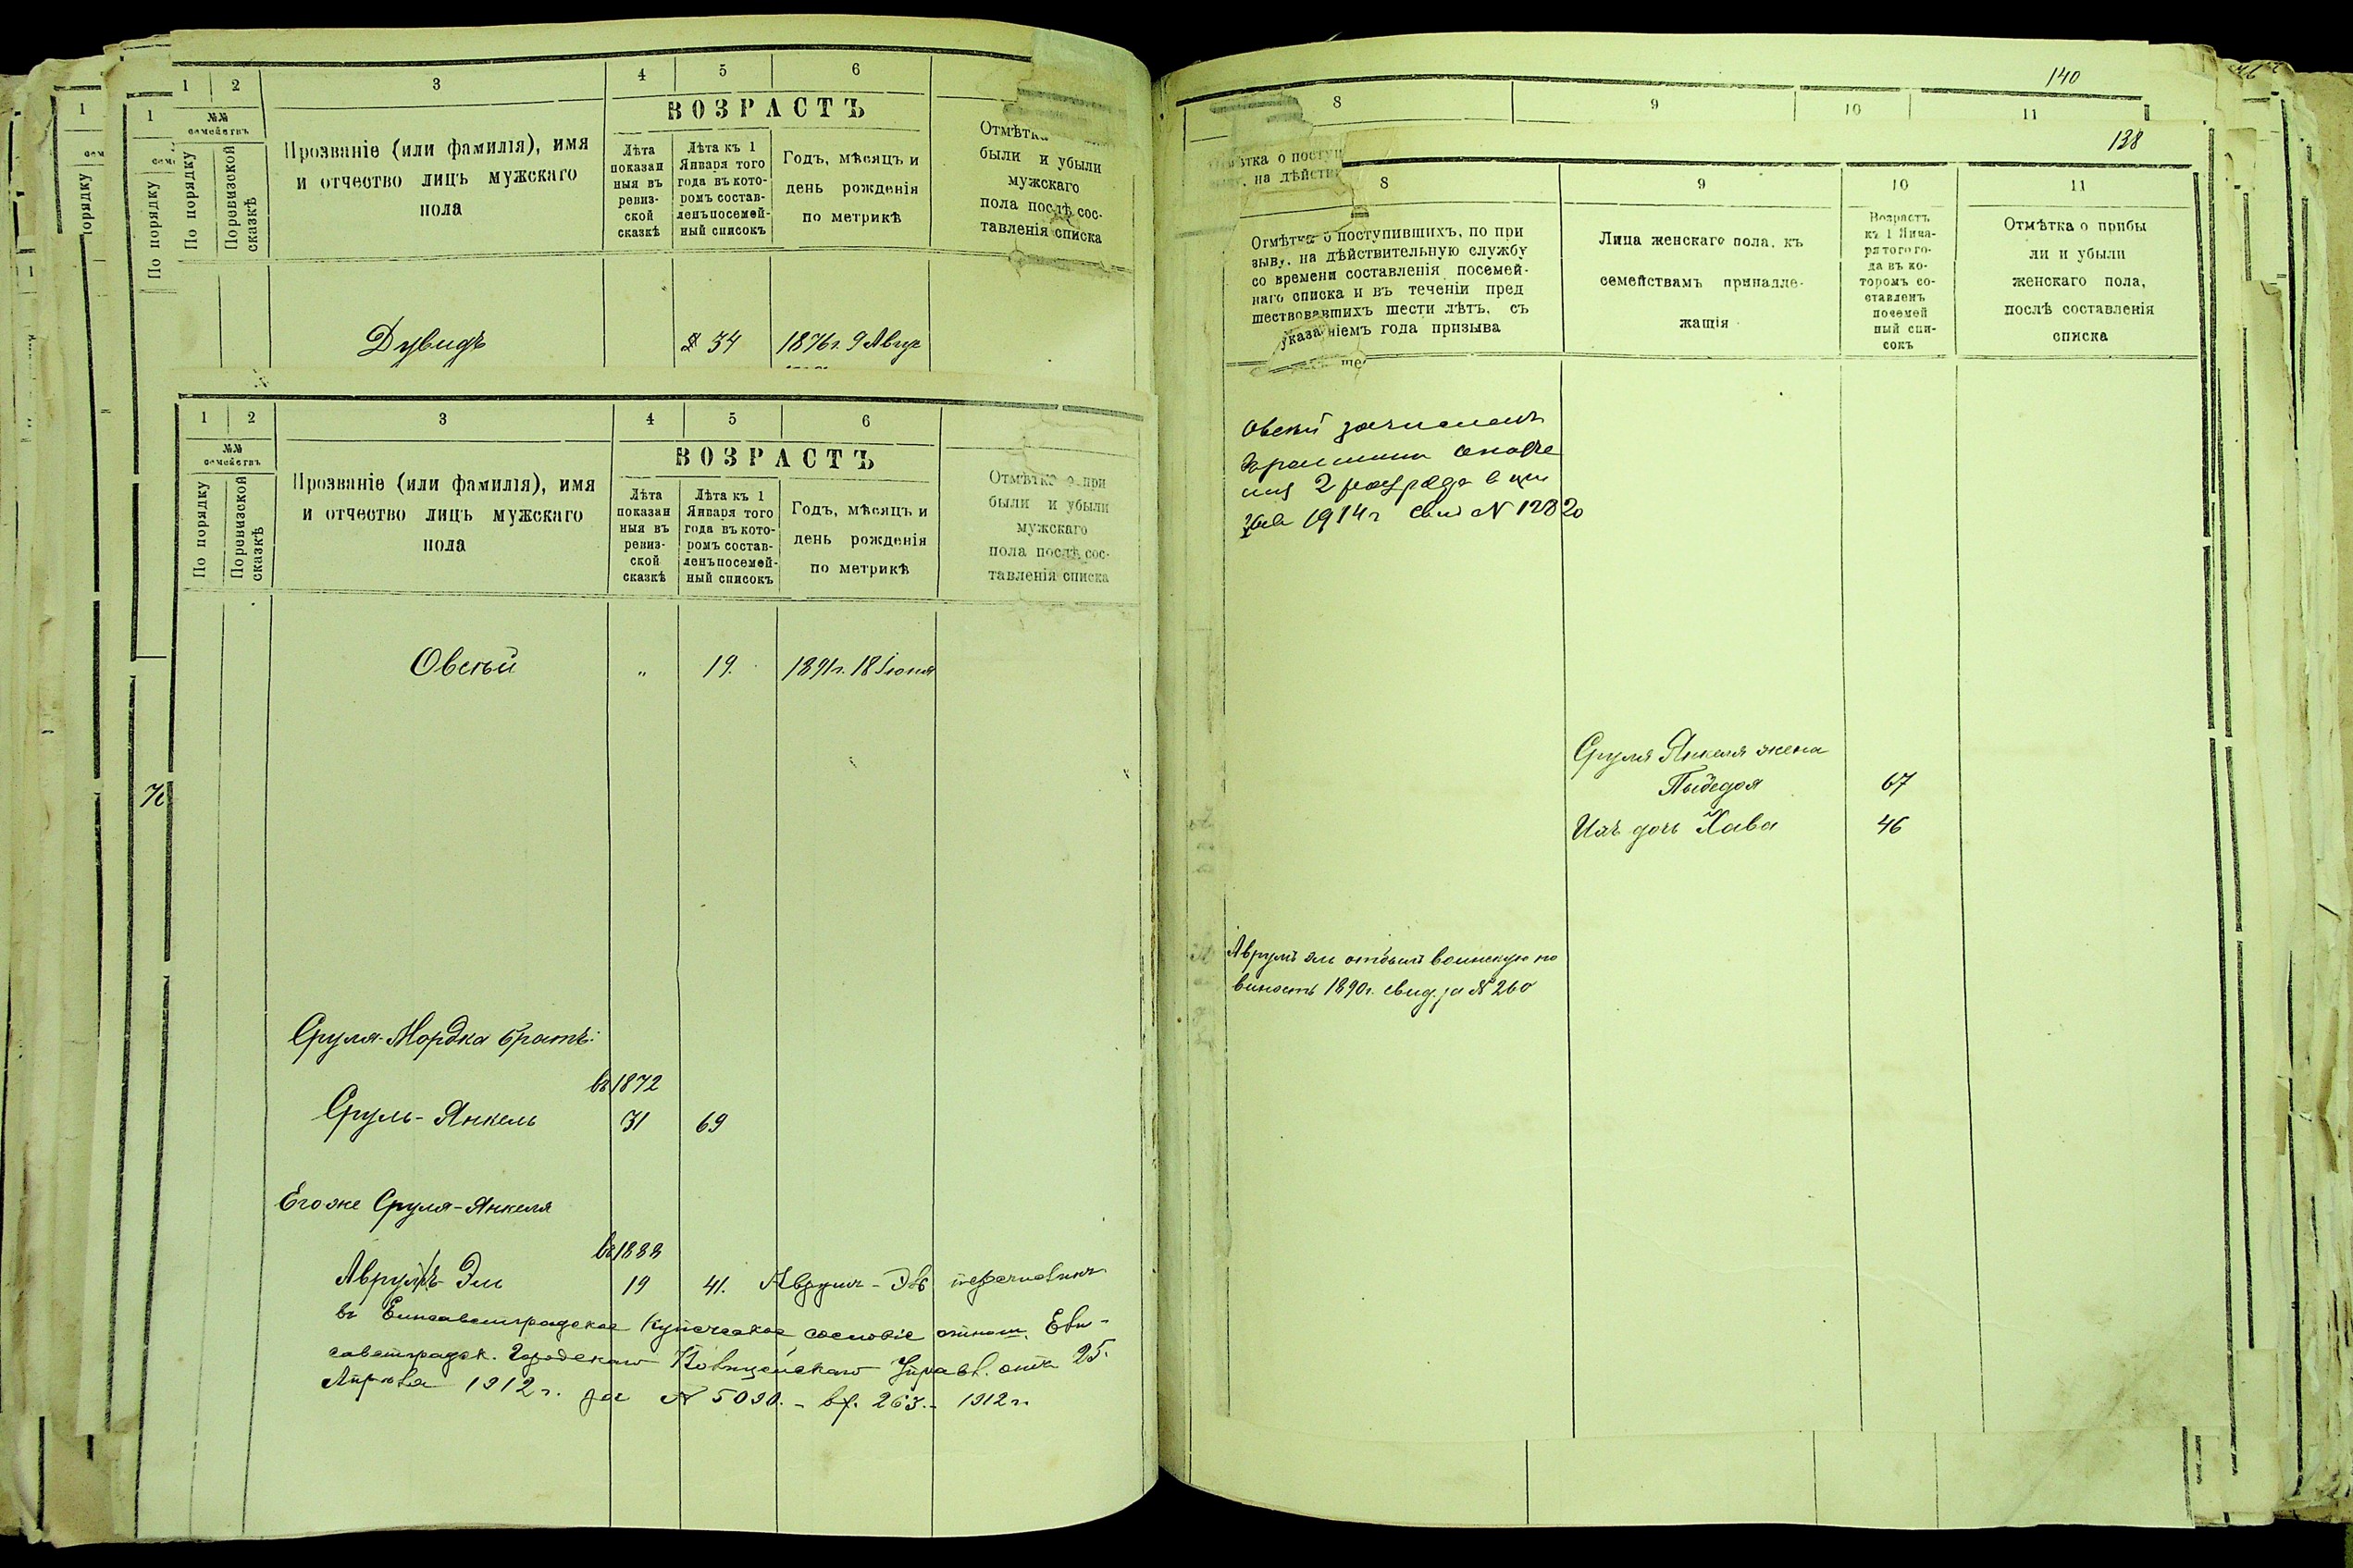 1 2 3 4 5 6
№№ семействъ
По порядку
Поревизской сказкѣ
Прозваніе (или фамилія), имя
и отчество лицъ мужскаго
пола
ВОЗРАСТЪ
Лѣта
показан
ныя въ
ревиз-
ской
сказкѣ
Лѣта къ 1
Января того
года въ кото-
ромъ состав-
ленъ посемей-
ный списокъ
Годъ, мѣсяцъ и
день рожденія
по метрикѣ
были и убыли
мужскаго
пола послѣ сос-
тавленія списка
Дувидъ 34 1876 г. 9 Авгус
1 2 3 4 5 6
№№
семействъ
По порядку
Поревизской
сказкѣ
Прозваніе (или фамилія), имя
и отчество лицъ мужскаго
пола
ВОЗРАСТЪ
Лѣта
показан
ныя въ
ревиз-
ской
сказкѣ
Лѣта къ 1
Января того
года въ кото-
ромъ состав-
ленъ посемей-
ный списокъ
Годъ, мѣсяцъ и
день рожденія
по метрикѣ
Отмѣтка о при
были и убыли
мужскаго
пола послѣ сос-
тавленія списка
Овсѣй „ 19. 1891 г. 18 Іюня
Сруля-Мордка братъ:
въ 1872
Сруль-Янкель 31 69
Его же Сруля-Янкеля
въ 1888
Аврумъ-Эль 19 41. Аврумъ-Эль перечисленъ
въ Елисаветградское купеческое сословіе отнош. Ели-
саветградск. Городского Полицейскаго Управл. отъ 25
Апрѣля 1912 г. за № 5090. - вх. 263. - 1912 г.
140
8 9 10 11
138
8 9 10 11
Отмѣтка о поступившихъ, по при
зыву, на дѣйствительную службу
со времени составленія посемей-
наго списка и въ теченіи пред
шествовавшихъ шести лѣтъ, съ
указаніемъ года призыва
Лица женскаго пола, къ
семействамъ принадле-
жащія
Возрастъ
къ 1 Янва-
ря того го-
да въ ко-
торомъ со-
ставленъ
посемей
ный спи-
сокъ
Отмѣтка о прибы
ли и убыли
женскаго пола,
послѣ составленія
списка
Овсей зачисленъ
ополче
2 разряда в
1914 г свид N 12820
Сруля Янкеля жена
67
Ихъ дочь Хава 46
Аврумъ Эль отбылъ воинскую по
винность 1890 г. свид. за № 260